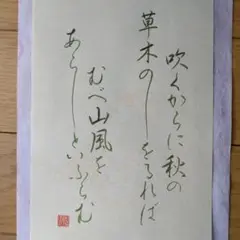 吹くからに秋の
草木のしをるれば
むべ山風を
あらしといふらむ